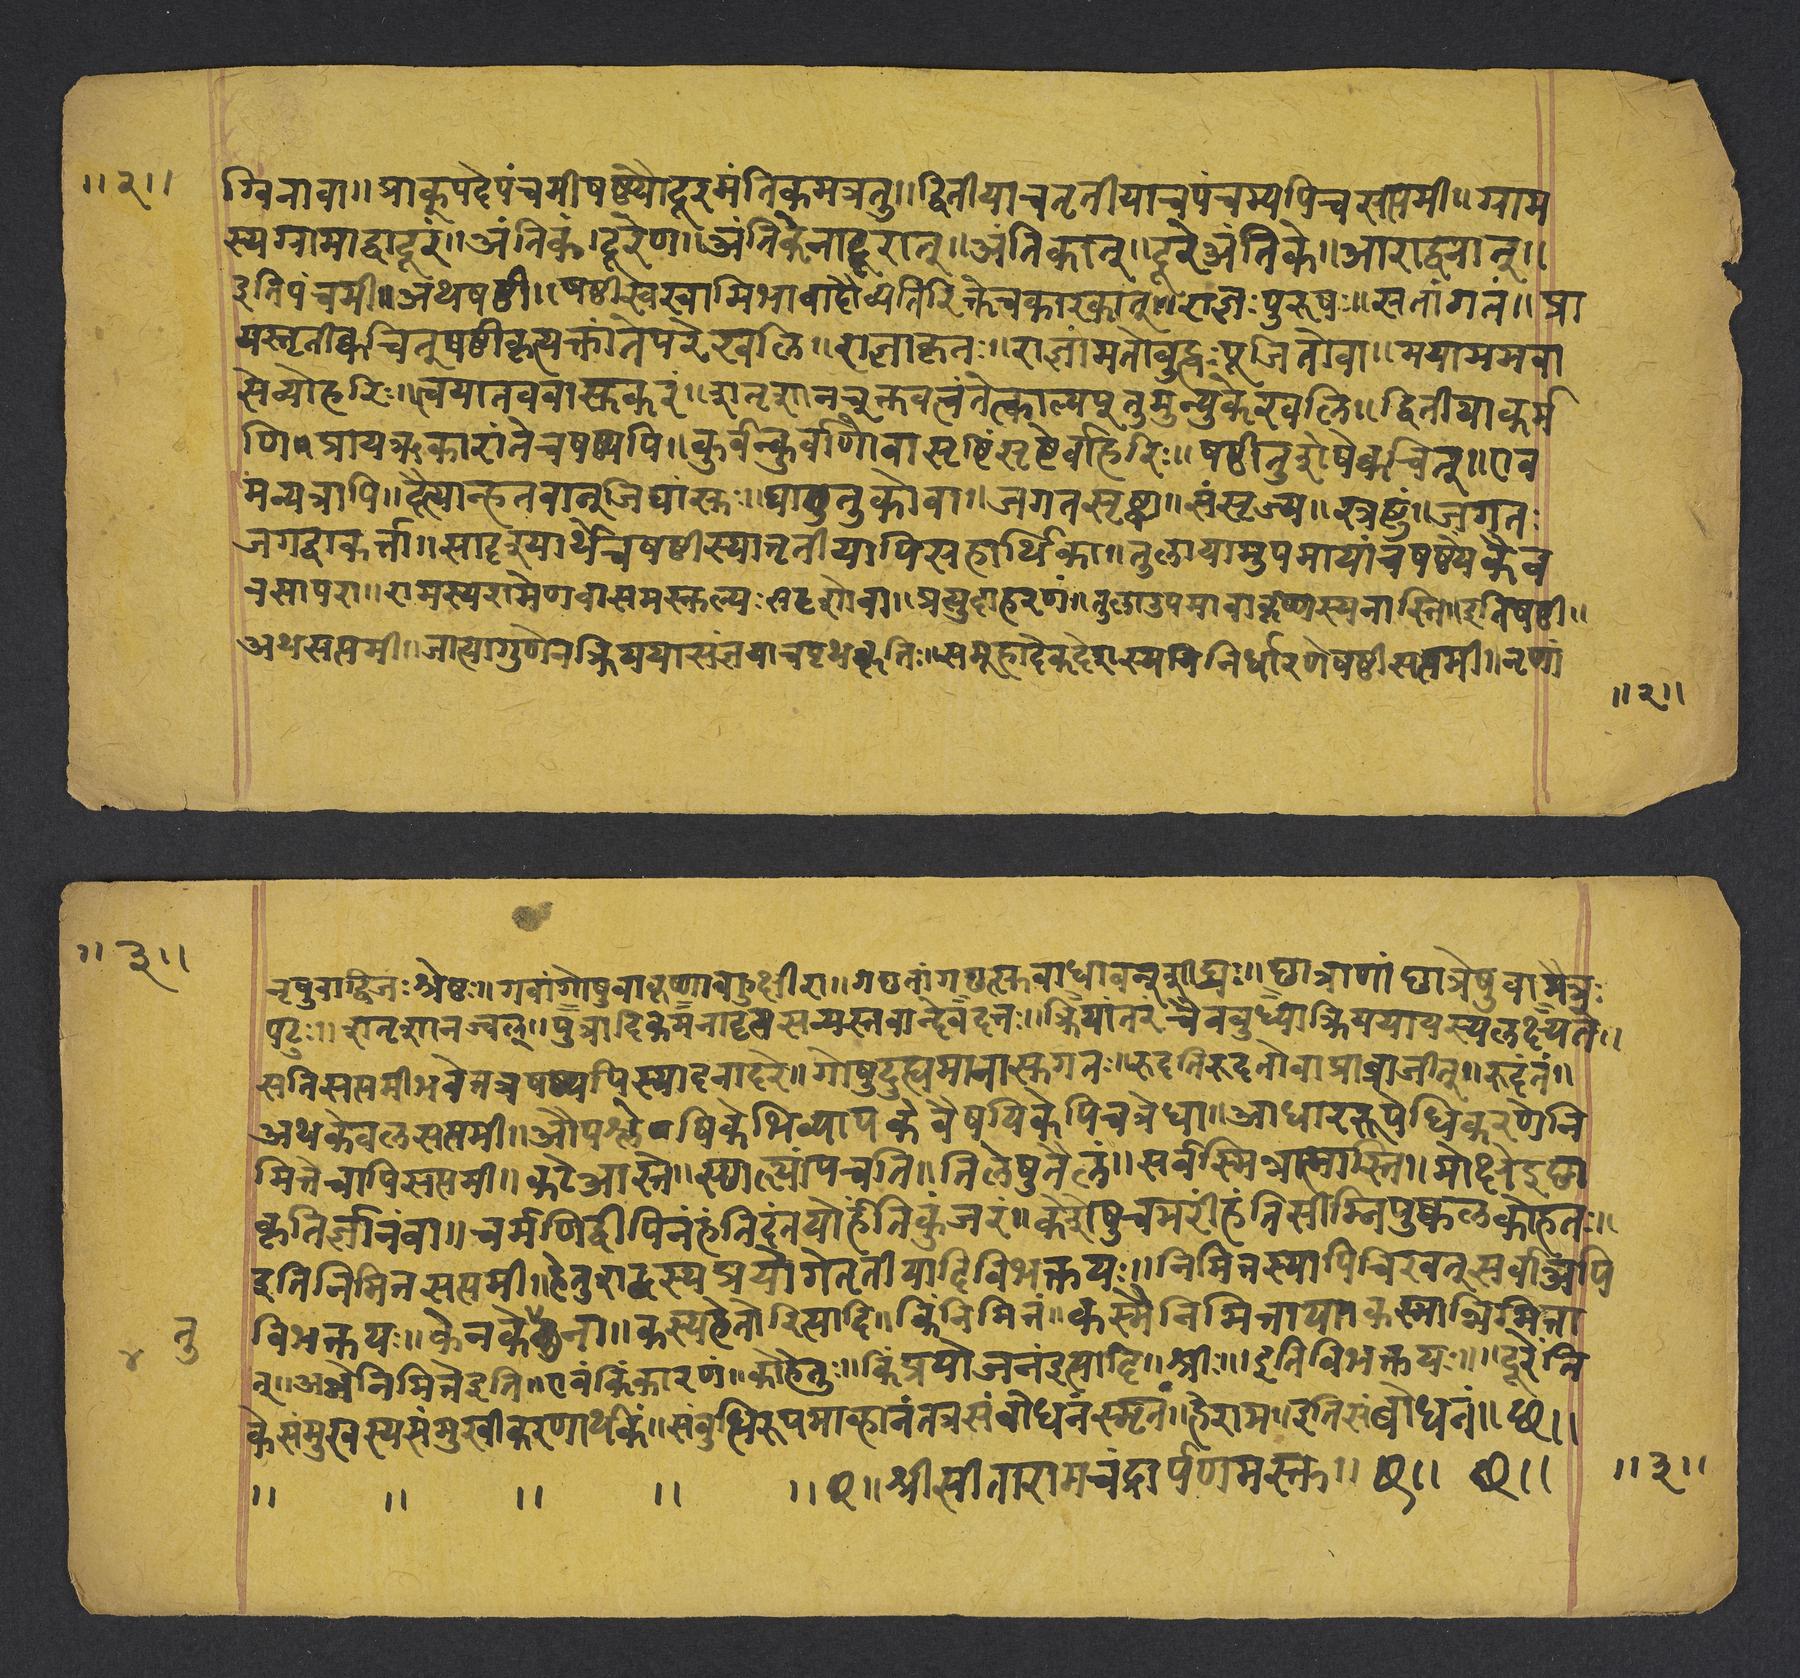 ॥२॥
ग्विनावा॥प्राक्पदेपंचमीषष्ठ्यौदूरमंतिकमत्रतु॥द्वितीयाचतृतीयाचपंचम्यपिचसप्तमी॥ग्राम
स्यग्रामाद्वादूरं॥अंतिकं।दूरेण॥अंतिकेनादूरात्॥अंतिकात्॥दूरेअंतिके॥आराद्वनात्॥
इतिपंचमी॥अथषष्ठी॥षष्ठीस्वस्वामिभावादौव्यतिरिक्तेचकारकात्॥राज्ञःपुरुषः॥सतांगतं॥प्रा
यस्तृतीक्वचित्षष्ठीकृत्यक्तांतेपरेस्खलि॥राज्ञाकृतः॥राज्ञांमतोबुद्धःपूजितोवा॥मयाममवा
सेव्योहरिः॥त्वयातववास्तकरं॥शतृशानचुक्तवत्वंतेत्काल्यपुतुमुन्युकेखलि॥द्वितीयाकर्म
णि॥प्रायऋकारांतेचषष्ठ्यपि॥कुर्वन्कुर्वाणोवासृष्टिंसृष्टेर्वाहरिः॥षष्ठीतुशेषेक्वचित्॥एव
मन्यत्रापि॥दैत्यान्हतवान्जिघांस्तः॥घातुतुकोवा॥जगतसृष्ट्वा॥संसृज्य॥स्त्रष्टुं॥जगतः
जगद्वाकर्त्ता॥सादृश्यार्थेचषष्ठीस्यात्तृतीयापिसहार्थिका॥तुलायामुपमायांचषष्ठ्येकैव
नसापरा॥रामस्यरामेणवासमस्तल्यःसदृशोवा॥प्रत्युदाहरणं॥तुलाउपमावाकृष्णस्यनास्ति॥इतिषष्ठी॥
अथसप्तमी॥जात्यागुणेनक्रिययासंज्ञयाचपृथक्कृतिः॥समूहादेकदेशस्यविनिर्धारणेषष्ठीसप्तमी॥नृणां
॥२॥
॥३॥
नृषुवाद्विजःश्रेष्ठः॥गवांगोषुवाकृष्णाबहुक्षीरा॥गछतांगछत्स्तवाधावन्शीघ्रः॥छात्राणांछात्रेषुवामैत्रः
पटुः॥शतृशानज्वल्॥पुत्रादिकमनादृत्यसंन्यस्तवान्देवदत्तः॥क्रियांतरंचैवबुध्याक्रिययायस्यलक्ष्यते॥
सतिसप्तमीभवेत्तत्रषष्ठ्यपिस्यादनादरे॥गोषुदुह्यमानास्तगतः॥रुदतिरुदतोवाप्राव्राजीत्॥रुदंतं॥
अथकेवलसप्तमी॥औपश्लेषिकेभिव्यापकेवैषयिकेपिचत्रेधा॥आधाररूपेधिकरणेनि
मित्तेचापिसप्तमी॥कटेआस्ते॥स्थाल्यांपचति॥तिलेषुतैलं॥सर्वस्मिन्नात्मास्ति॥मोक्षेइछा
कृतिर्ज्ञानंवा॥चर्मणिद्वीपिनंहंतिदंतयोर्हंतिकुंजरं॥केशेषुचमरींहंतिसीम्निपुष्कलकोहतः॥
इतिनिमित्तसप्तमी॥हेतुशब्दस्यप्रयोगेतृतीयादिविभक्तयः॥निमित्तस्यापिचिरवत्सर्वाअपि
विभक्तयः॥केनकेहेतुना॥कस्यहेतोरित्यादि॥किंनिमित्तं॥कस्मैनिमित्तायाकस्मान्निमित्ता
त्॥अन्नेनिमित्तेइति॥एवंकिंकारणं॥कोहेतुः॥किंप्रयोजनंइत्यादि॥श्रीः॥इतिविभक्तयः॥दूरेंति
केसंमुखस्यसंमुखीकरणार्थकिं॥संबुध्धिरूपमाव्हानंतत्रसंबोधनंस्मृतं॥हेराम॥इतिसंबोधनं॥छ॥
॥ ॥ ॥ ॥ ॥छ॥श्रीसीतारामचंद्रार्पणमस्तु॥छ॥ छ॥
४ तु
॥३॥